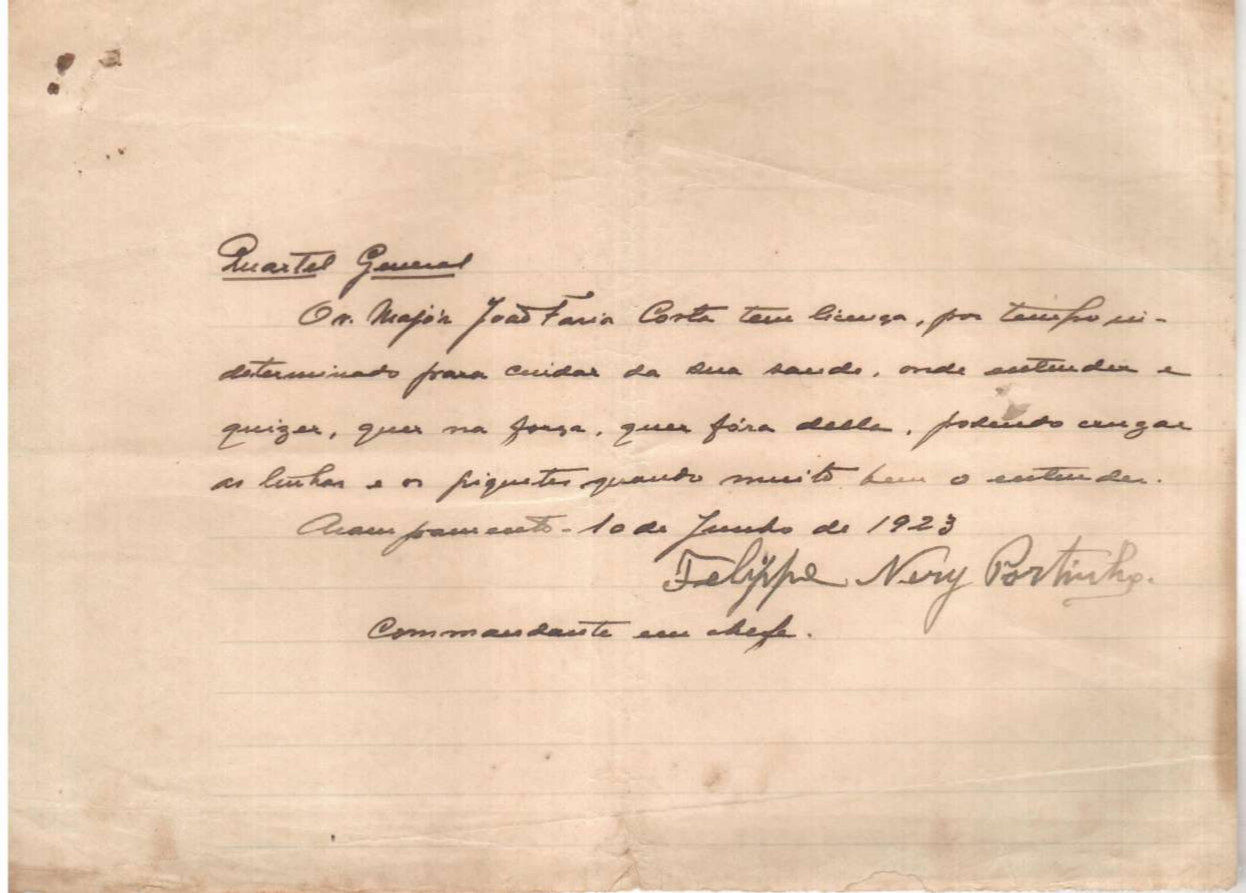 Quartel General
O sr. Majór João Faria Costa tem licença, por tempo in-
determinado para cuidar da sua saude, onde entender e
quizer, quer na força, quer fóra della, podendo cruzar
as linhas e os piquetes quando muito bem o entender.
Acampamento - 10 de Junho de 1923
Felippe Nery Portinho.
Commandante em chefe.